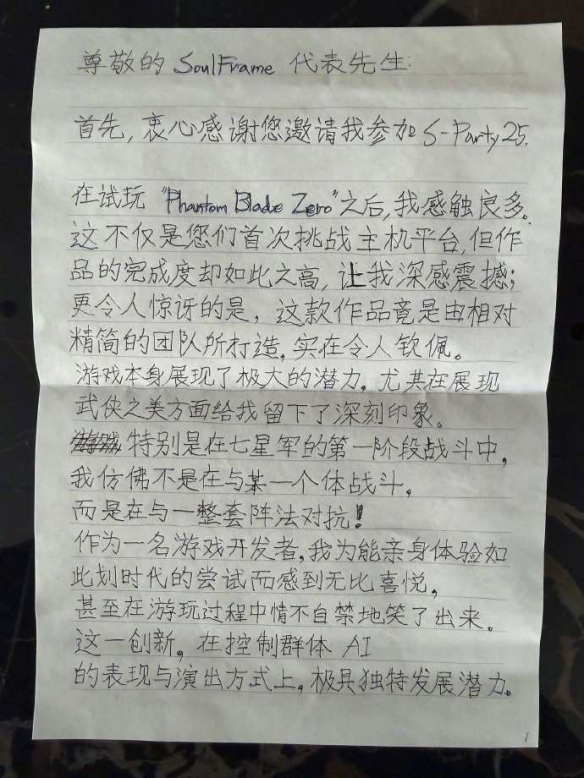 尊敬的 SoulFrame 代表先生:
首先, 衷心感谢您邀请我参加 S-Party 25.
在试玩 "Phantom Blade Zero" 之后, 我感触良多。
这不仅是您们首次挑战主机平台, 但作
品的完成度却如此之高, 让我深感震撼;
更令人惊讶的是, 这款作品竟是由相对
精简的团队所打造, 实在令人钦佩。
游戏本身展现了极大的潜力, 尤其在展现
武侠之美方面给我留下了深刻印象。
特别是在七星军的第一阶段战斗中,
我仿佛不是在与某一个体战斗,
而是在与一整套阵法对抗!
作为一名游戏开发者, 我为能亲身体验如
此划时代的尝试而感到无比喜悦,
甚至在游玩过程中情不自禁地笑了出来。
这一创新, 在控制群体 AI
的表现与演出方式上, 极具独特发展潜力。
1